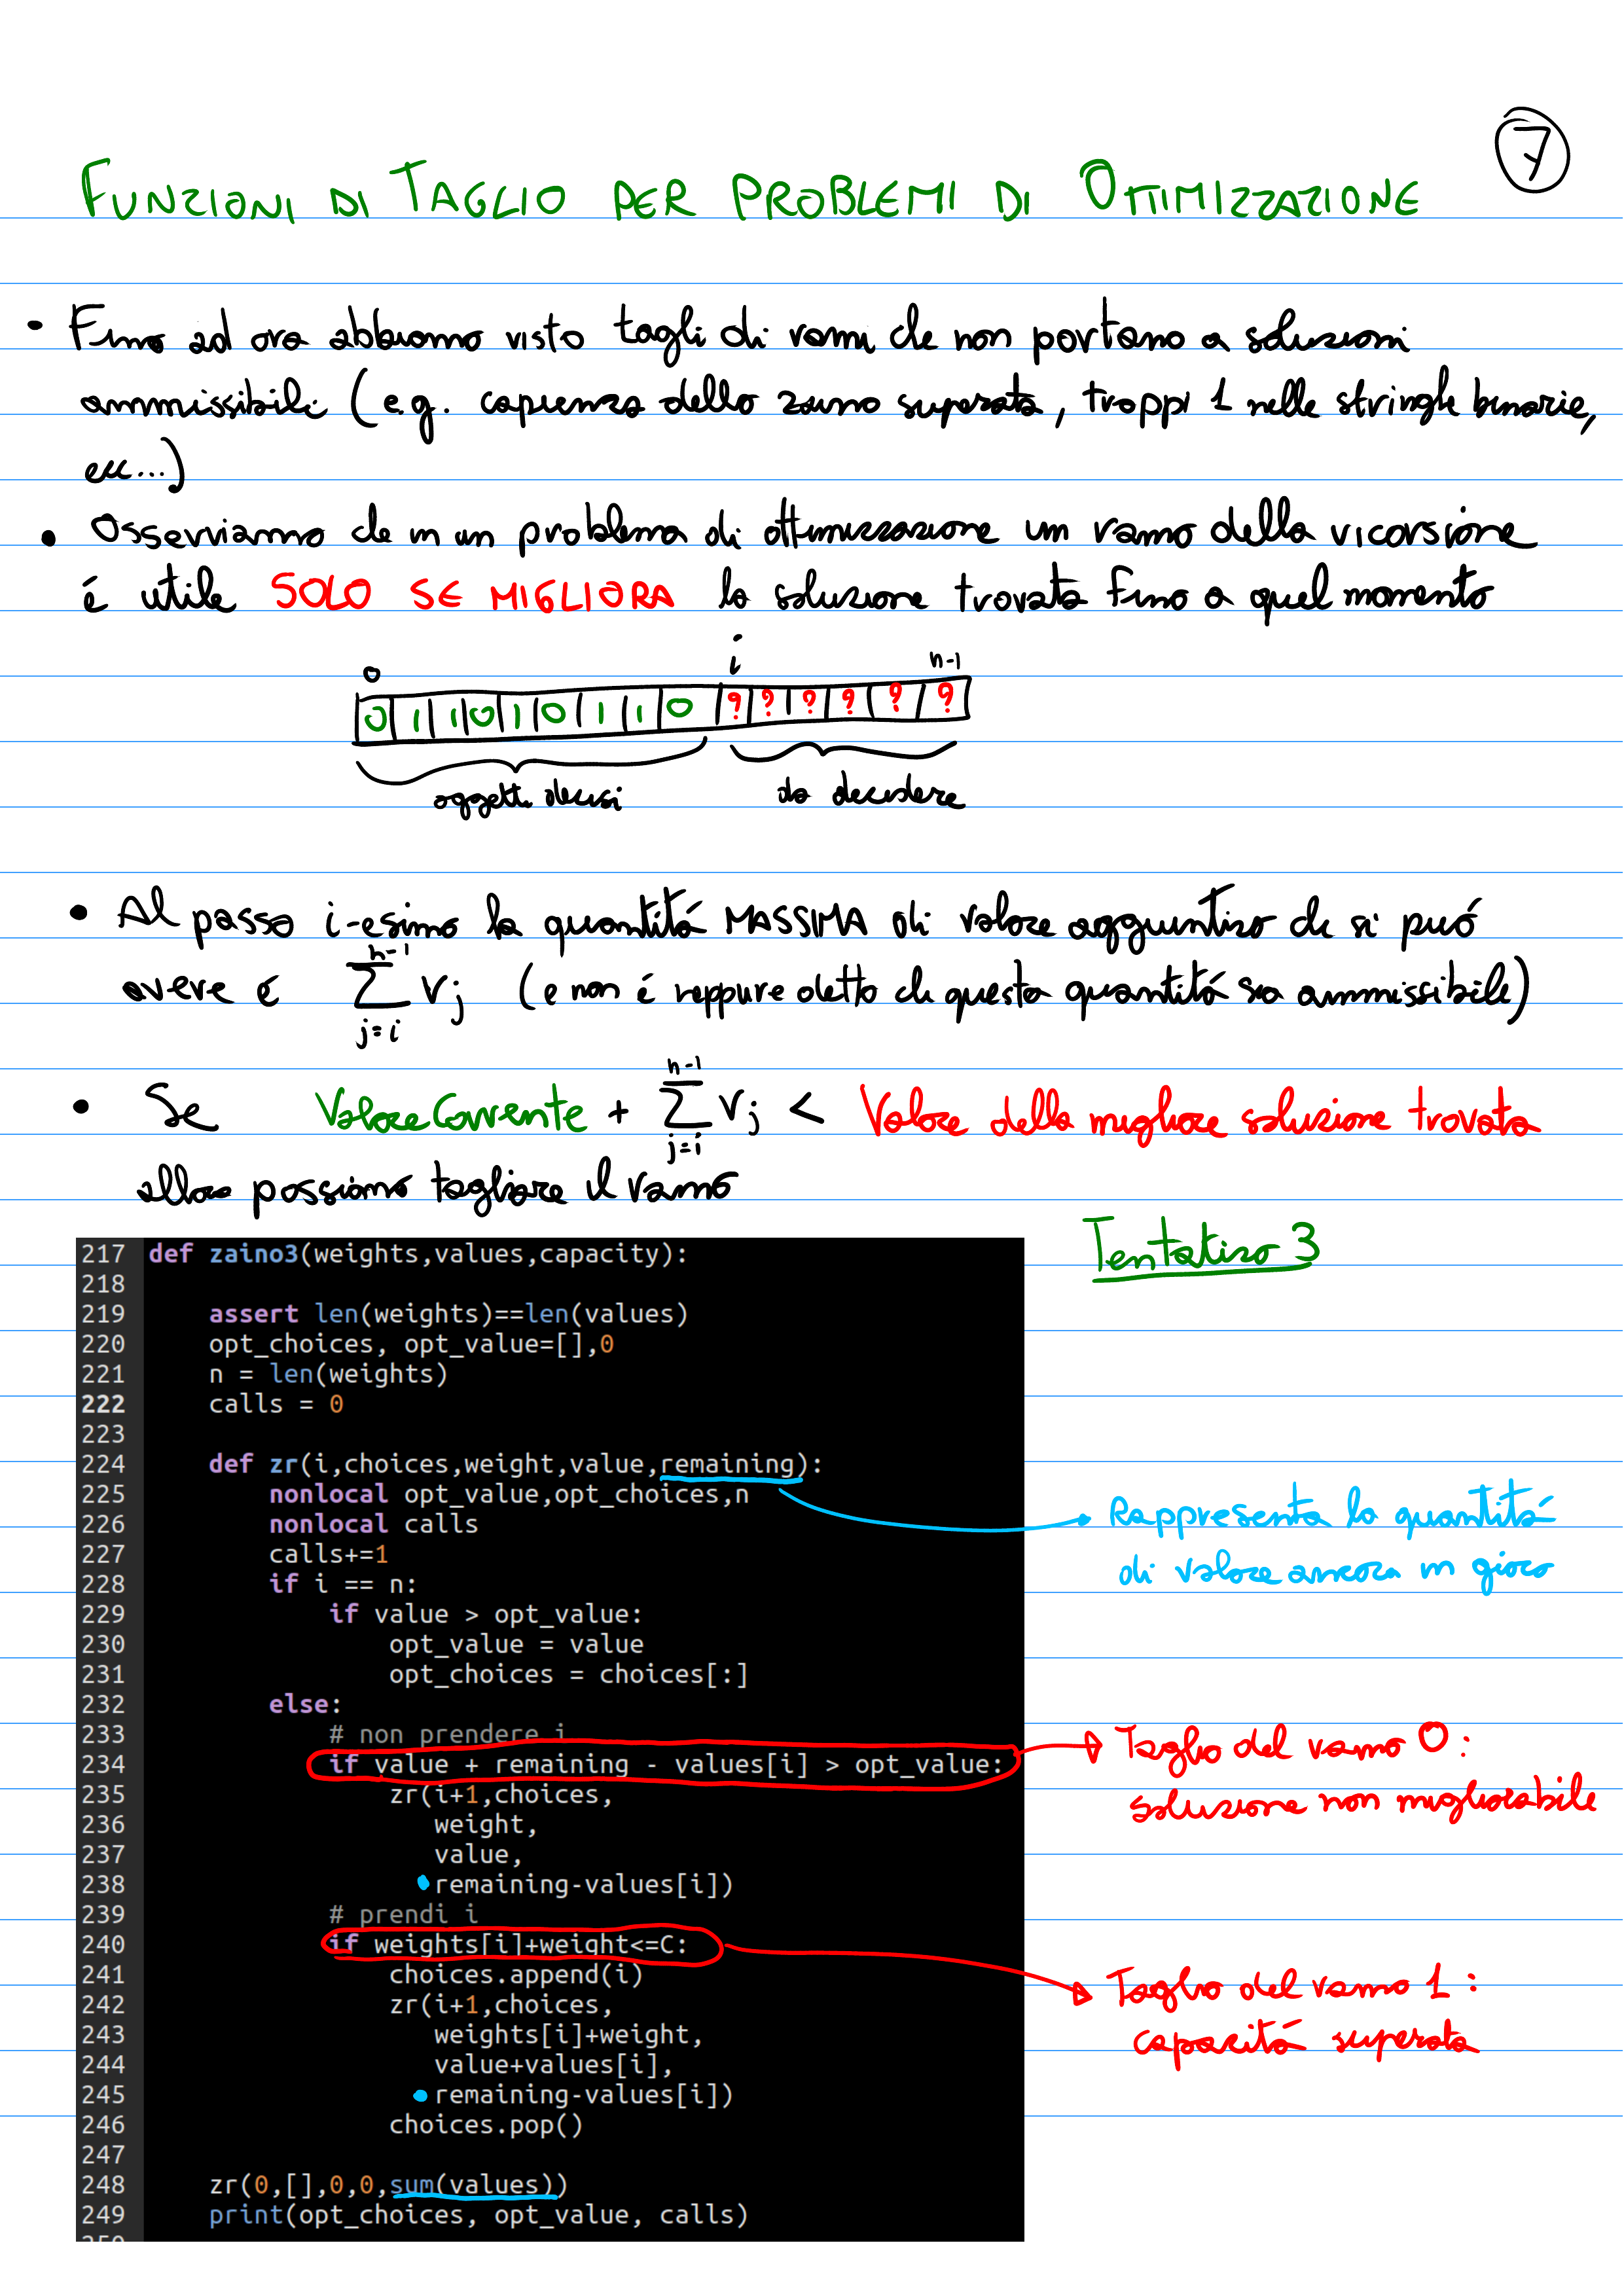 7
FUNZIONI DI TAGLIO PER PROBLEMI DI OTTIMIZZAZIONE
• Fino ad ora abbiamo visto tagli di rami che non portano a soluzioni
ammissibili (e.g. capienza dello zaino superata, troppi 1 nelle stringhe binarie,
ecc...)
• Osserviamo che in un problema di ottimizzazione un ramo della ricorsione
é utile SOLO SE MIGLIORA la soluzione trovata fino a quel momento
0 i n-1
0 1 1 0 1 0 1 1 0 ? ? ? ? ? ?
oggetti decisi da decidere
• Al passo i-esimo la quantitá MASSIMA di valore aggiuntivo che si puó
avere é \sum_{j=i}^{n-1} v_j (e non é neppure detto che questa quantitá sia ammissibile)
• Se Valore Corrente + \sum_{j=i}^{n-1} v_j < Valore della migliore soluzione trovata
allora possiamo tagliare il ramo
Tentativo 3
217 def zaino3(weights,values,capacity):
218
219     assert len(weights)==len(values)
220     opt_choices, opt_value=[],0
221     n = len(weights)
222     calls = 0
223
224     def zr(i,choices,weight,value,remaining):
225         nonlocal opt_value,opt_choices,n
226         nonlocal calls
227         calls+=1
228         if i == n:
229             if value > opt_value:
230                 opt_value = value
231                 opt_choices = choices[:]
232         else:
233             # non prendere i
234             if value + remaining - values[i] > opt_value:
235                 zr(i+1,choices,
236                    weight,
237                    value,
238                    remaining-values[i])
239             # prendi i
240             if weights[i]+weight<=C:
241                 choices.append(i)
242                 zr(i+1,choices,
243                    weights[i]+weight,
244                    value+values[i],
245                    remaining-values[i])
246                 choices.pop()
247
248     zr(0,[],0,0,sum(values))
249     print(opt_choices, opt_value, calls)
250
Rappresenta la quantitá
di valore ancora in gioco
Taglio del ramo 0:
soluzione non migliorabile
Taglio del ramo 1:
capacitá superata